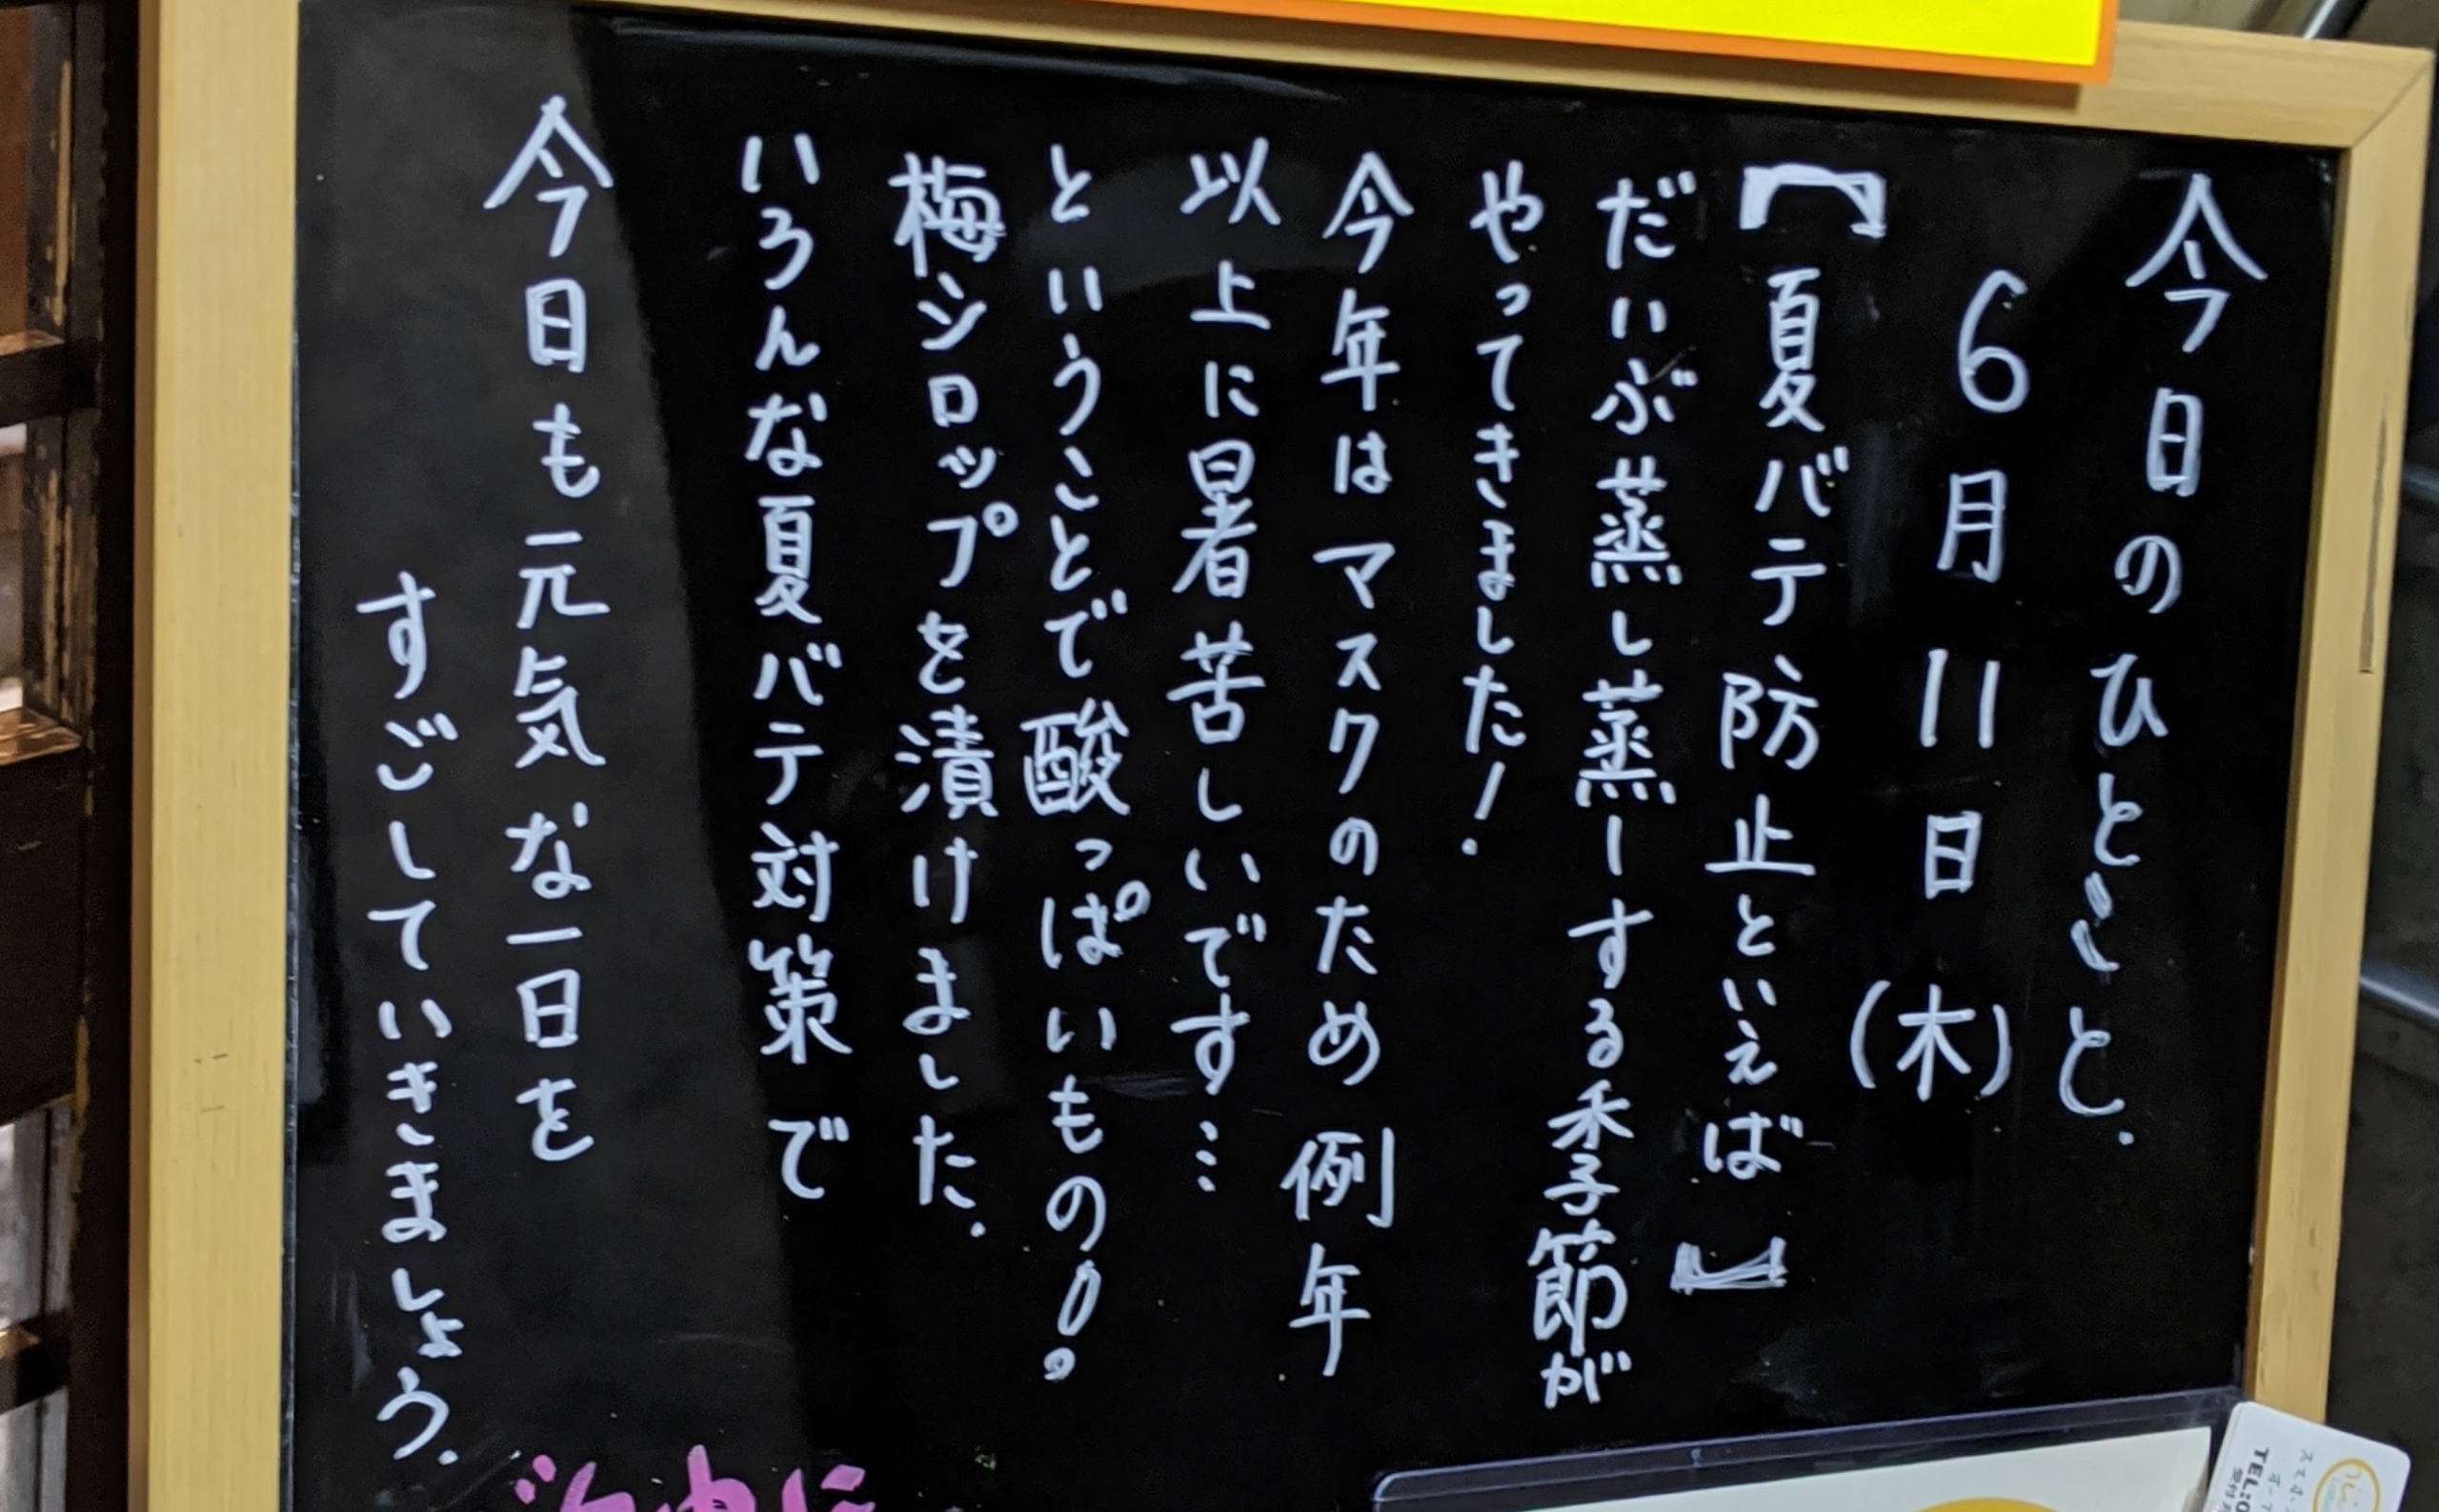 今日のひとこと.
6月11日(木)
【夏バテ防止といえば】
だいぶ蒸し蒸しーする季節が
やってきました!
今年はマスクのため例年
以上に暑苦しいです…
ということで酸っぱいもの!
梅シロップを漬けました.
いろんな夏バテ対策で
今日も元気な一日を
すごしていきましょう.
TEL:0